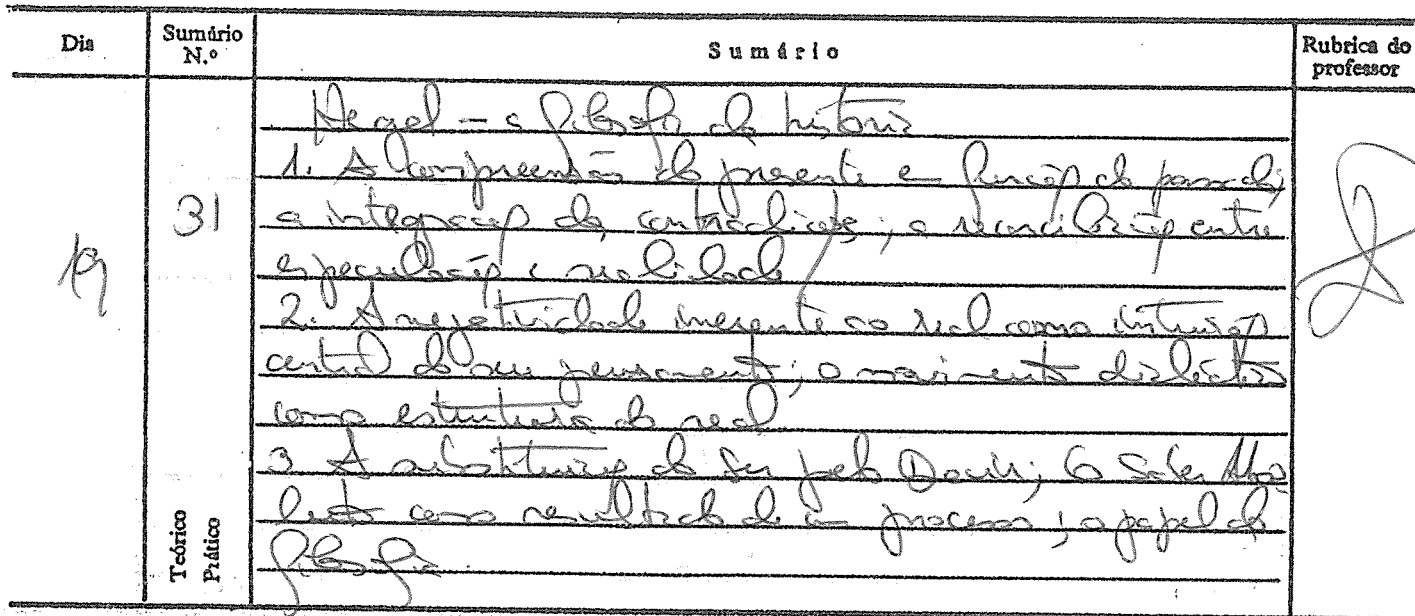 Dia
Sumário N.º
Sumário
Rubrica do professor
19
31
Teórico
Prático
Hegel - a filosofia da história
1. A compreensão do presente em função do passado;
a integração das contradições; a reconciliação entre
especulação e realidade
2. A negatividade inerente ao real como intuição
central do seu pensamento; o movimento dialéctico
como estrutura do real.
3 A substituição do Ser pelo Devir; O Saber Abso
luto como resultado de um processo; o papel da
filosofia.